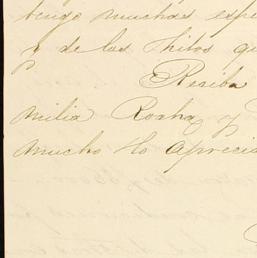 tengo muchas espe
y de los Hilos qu
Reciba
milia Rocha y
mucho lo aprecia